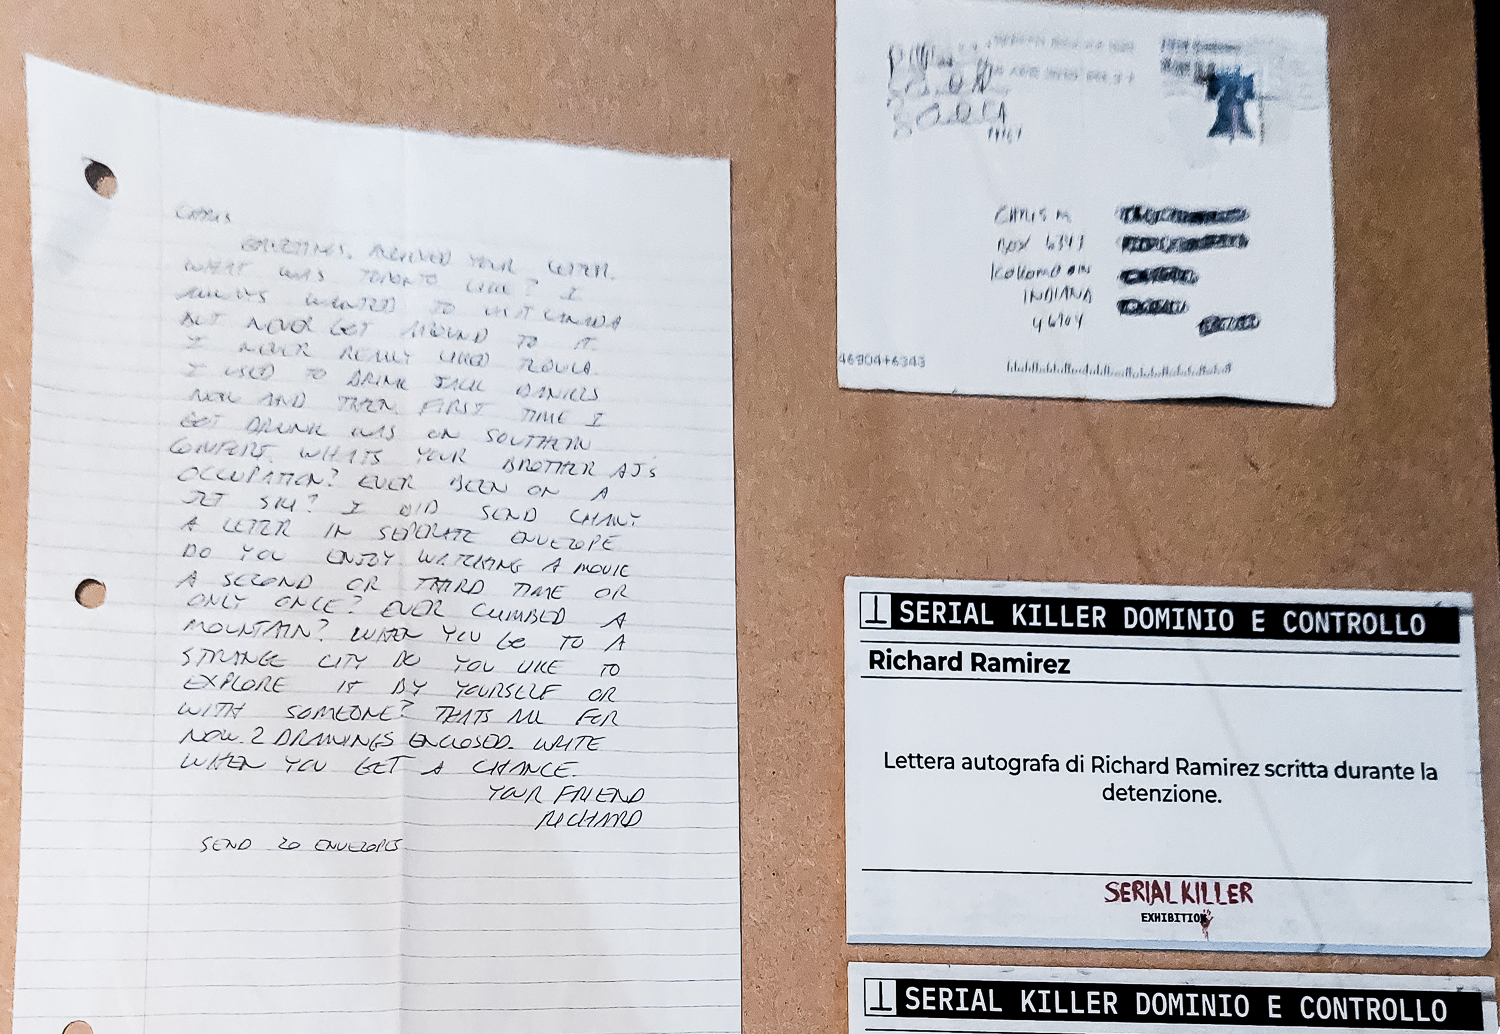 CHRIS
GREETINGS. RECEIVED YOUR LETTER.
WHAT WAS TORONTO LIKE? I
ALWAYS WANTED TO VISIT CANADA
BUT NEVER GOT AROUND TO IT.
I NEVER REALLY LIKED
I USED TO DRINK JACK DANIELS
NOW AND THEN. FIRST TIME I
GOT DRUNK WAS ON SOUTHERN
COMFORT. WHATS YOUR BROTHER AJs
OCCUPATION? EVER BEEN ON A
JET SKI? I DID SEND
A LETTER IN SEPERATE ENVELOPE
DO YOU ENJOY WATCHING A MOVIE
A SECOND OR THIRD TIME OR
ONLY ONCE? EVER CLIMBED A
MOUNTAIN? WHEN YOU GO TO A
STRANGE CITY DO YOU LIKE TO
EXPLORE IT BY YOURSELF OR
WITH SOMEONE? THATS ALL FOR
NOW. 2 DRAWINGS ENCLOSED. WRITE
WHEN YOU GET A CHANCE.
YOUR FRIEND
RICHARD
SEND 20 ENVELOPES
CHRIS M.
BOX 6343
INDIANA
46904
46904+6343
SERIAL KILLER DOMINIO E CONTROLLO
Richard Ramirez
Lettera autografa di Richard Ramirez scritta durante la
detenzione.
SERIAL KILLER
EXHIBITION
SERIAL KILLER DOMINIO E CONTROLLO